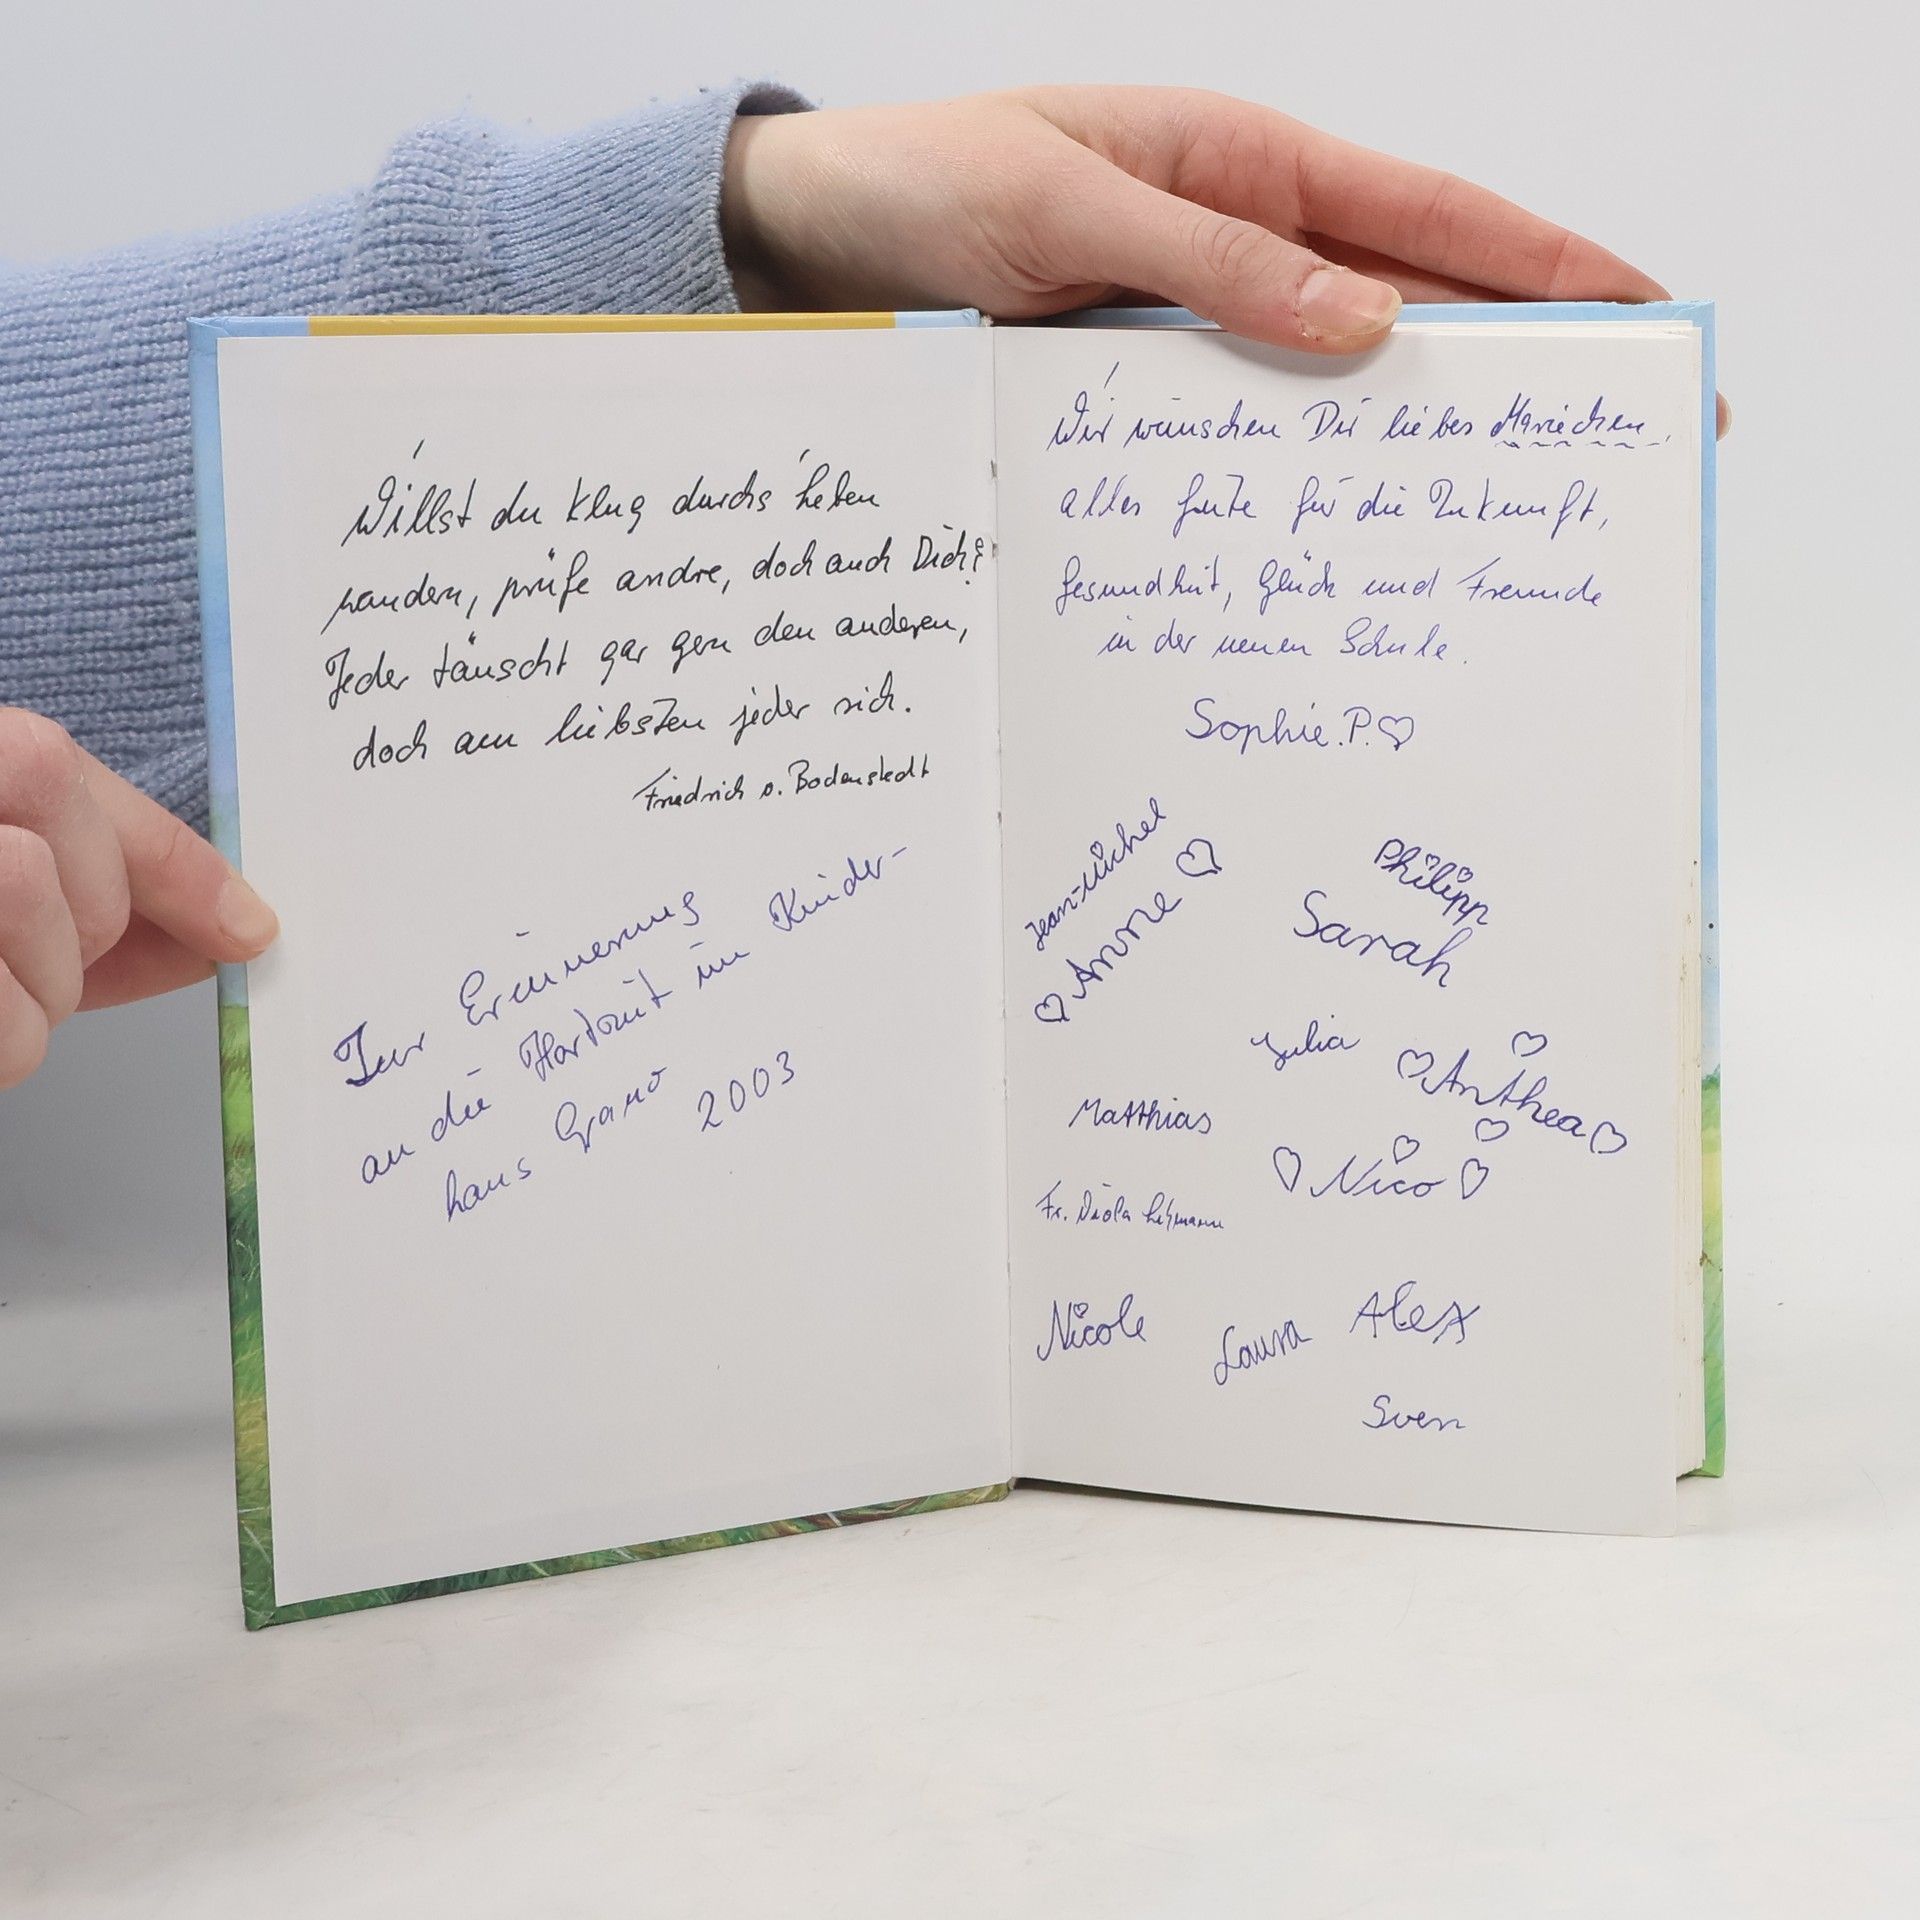 Willst du klug durchs Leben
wandern, prüfe andre, doch auch Dich!
Jeder täuscht gar gern den anderen,
doch am liebsten jeder sich.
Friedrich v. Bodenstedt
Zur Erinnerung
an die Hortzeit im Kinder-
haus Grano
2003
Wir wünschen Dir liebes Mariechen,
alles Gute für die Zukunft,
Gesundheit, Glück und Freunde
in der neuen Schule.
Sophie.P.♡
Jean-Michel
♡ Anne ♡
Philipp
Sarah
Julia
♡ Anthea ♡
Matthias
♡ Nico ♡
Fr. Viola Lehmann
Nicole
Laura
Alex
Sven